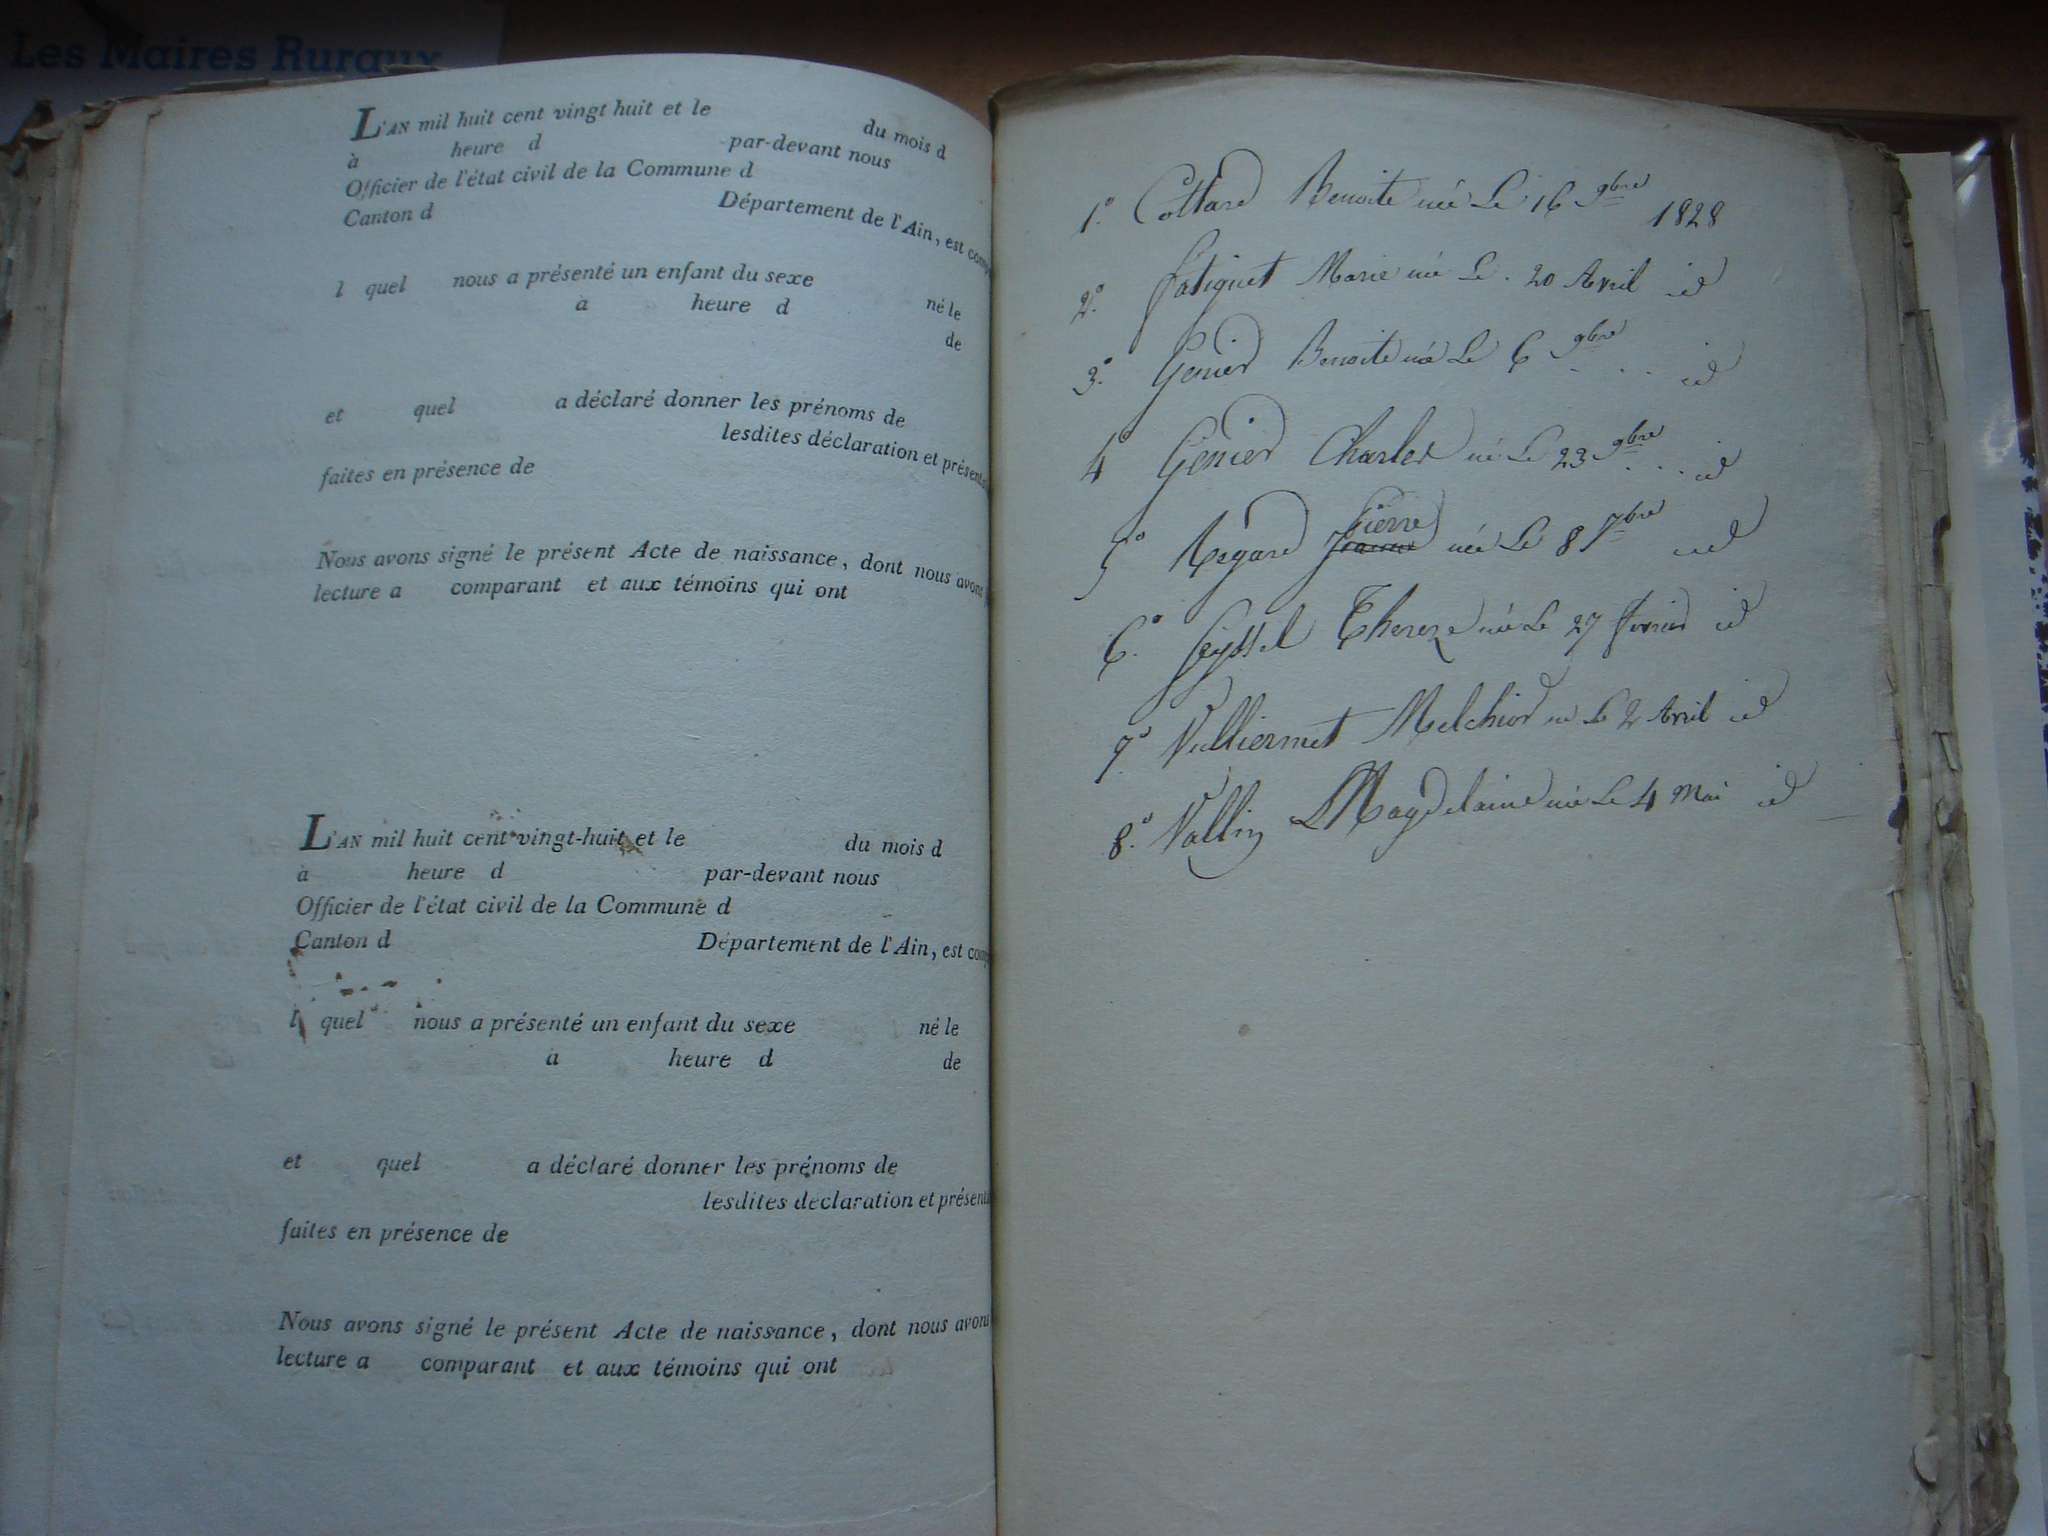 Les Maires Ruraux
L'AN mil huit cent vingt huit et le du mois d
à heure d par-devant nous
Officier de l'état civil de la Commune d
Canton d Département de l'Ain, est comp
l quel nous a présenté un enfant du sexe né le
à heure d de
et quel a déclaré donner les prénoms de
lesdites déclaration et présent
faites en présence de
Nous avons signé le présent Acte de naissance, dont nous avons
lecture a comparant et aux témoins qui ont
L'AN mil huit cent vingt-huit et le du mois d
à heure d par-devant nous
Officier de l'état civil de la Commune d
Canton d Département de l'Ain, est comp
l quel nous a présenté un enfant du sexe né le
à heure d de
et quel a déclaré donner les prénoms de
lesdites déclaration et présent
faites en présence de
Nous avons signé le présent Acte de naissance, dont nous avons
lecture a comparant et aux témoins qui ont
1.° Cottard Benoite née Le 16 9bre 1828
2.° Marie née Le 20 Avril id
3.° Genier Benoite née Le 6 9bre . . . id
4° Genier Charles né Le 23 9bre . . . id
5° Regard Pierre née Le 8 7bre id
6.° Thereze née Le 27 fevrier id
7.° Vulliermet Melchior né Le 2 Avril id
8.° Vallin Magdelaine née Le 4 Mai id